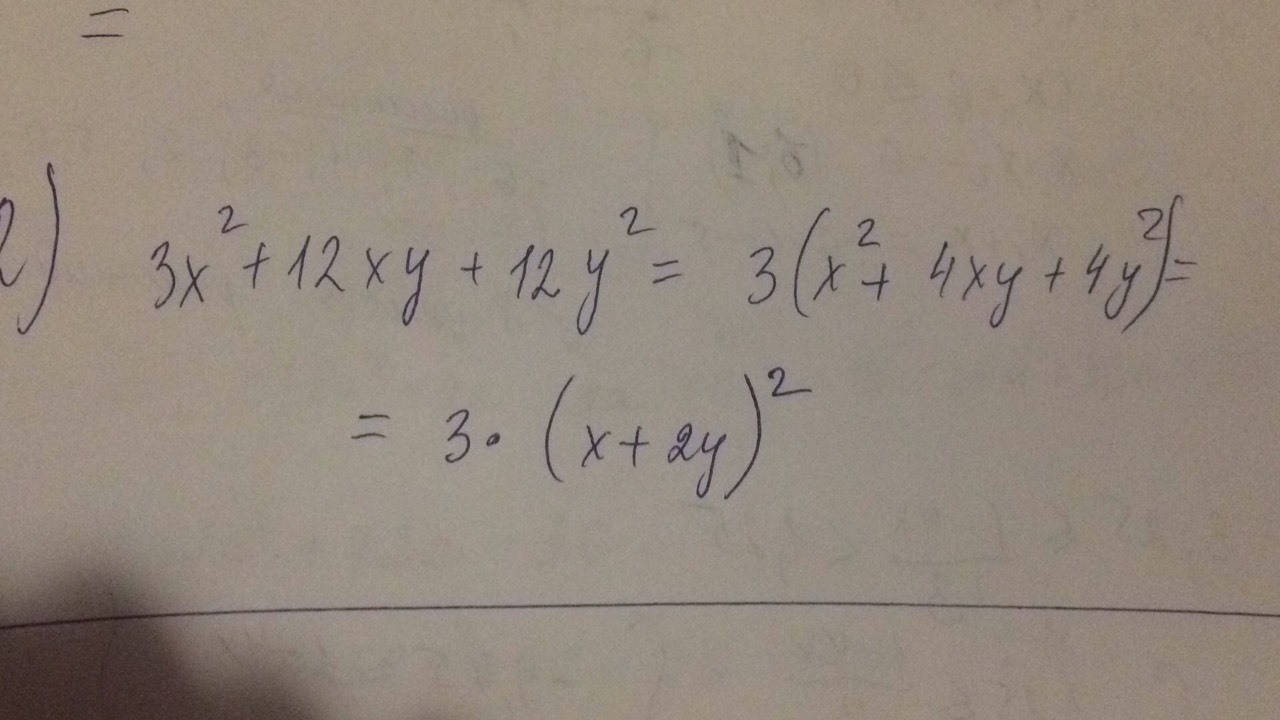 =
2) 3x² + 12xy + 12y² = 3(x² + 4xy + 4y²) =
= 3 · (x + 2y)²